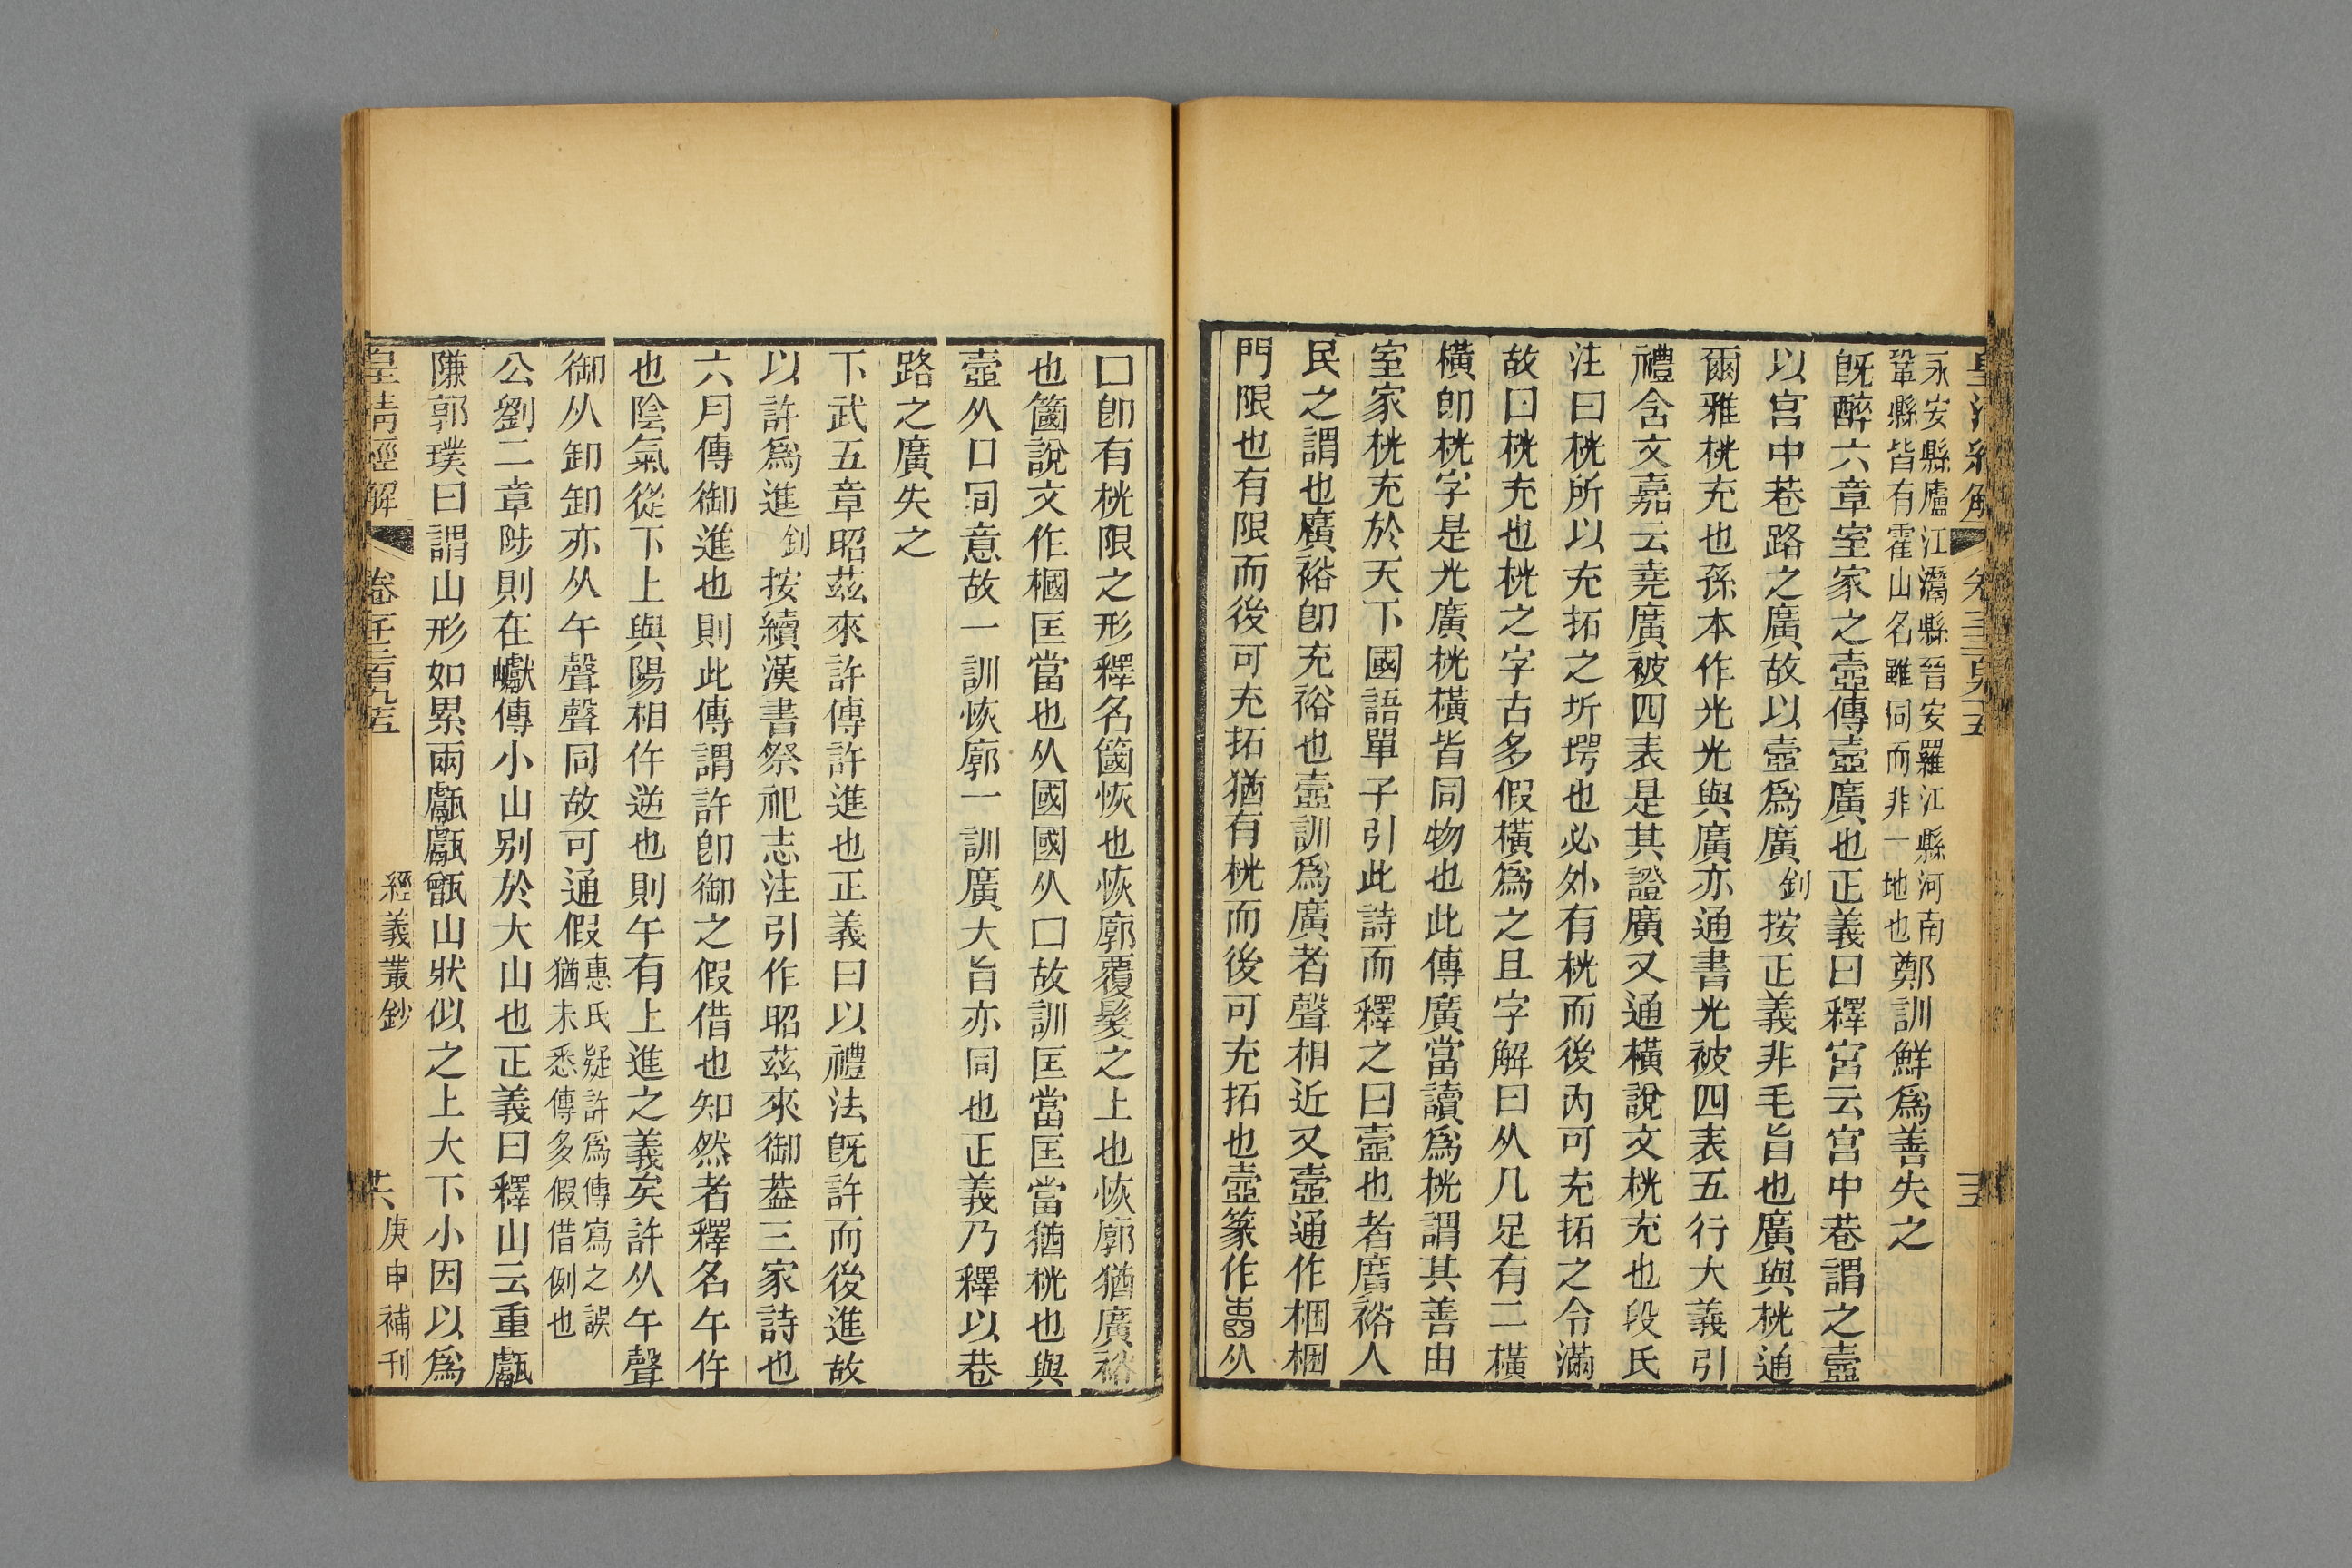 永安縣廬江灊縣晉安羅江縣河南
鞏縣皆有霍山名雖同而非一地也鄭訓鮮爲善失之
旣醉六章室家之壼傳壼廣也正義曰釋宮云宮中巷謂之壼
以宮中巷路之廣故以壼爲廣釗按正義非毛旨也廣與桄通
爾雅桄充也孫本作光光與廣亦通書光被四表五行大義引
禮含文嘉云堯廣被四表是其證廣又通橫說文桄充也段氏
注曰桄所以充拓之圻堮也必外有桄而後內可充拓之令滿
故曰桄充也桄之字古多假橫爲之且字解曰从几足有二橫
橫卽桄字是光廣桄橫皆同物也此傳廣當讀爲桄謂其善由
室家桄充於天下國語單子引此詩而釋之曰壼也者廣裕人
民之謂也廣裕卽充裕也壼訓爲廣者聲相近又壼通作梱梱
門限也有限而後可充拓猶有桄而後可充拓也壼篆作从
囗卽有桄限之形釋名簂恢也恢廓覆髮之上也恢廓猶廣裕
也簂說文作槶匡當也从國國从囗故訓匡當匡當猶桄也與
壼从囗同意故一訓恢廓一訓廣大旨亦同也正義乃釋以巷
路之廣失之
下武五章昭茲來許傳許進也正義曰以禮法旣許而後進故
以許爲進釗按續漢書祭祀志注引作昭茲來御葢三家詩也
六月傳御進也則此傳謂許卽御之假借也知然者釋名午仵
也陰氣從下上與陽相仵逆也則午有上進之義矣許从午聲
御从卸卸亦从午聲聲同故可通假惠氏疑許爲傳寫之誤
猶未悉傳多假借例也
公劉二章陟則在巘傳小山别於大山也正義曰釋山云重甗
隒郭璞曰謂山形如累兩甗甗甑山狀似之上大下小因以爲
皇清經解 卷千三百九五 經義叢鈔 共 庚申補刊